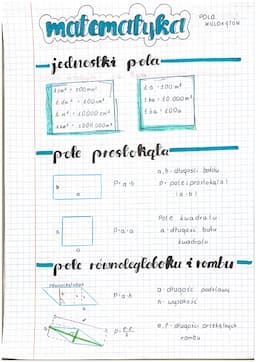 matematyka
POLA
WIELOKĄTÓW
jednostki pola
1 cm² = 100 mm²
1 dm² = 100 cm²
1 m² = 10000 cm²
1 km² = 1000000 m²
1 a = 100 m²
1 ha = 10 000 m²
1 ha = 100a
pole prostokąta
b
a
P=a·b
a, b - długości boków
p - pole prostokąta
(a·b)
a
P=a·a
Pole kwadratu
a - długość boku
kwadratu
pole równoległoboku i rombu
równoległobok
P=a·h
a - długość podstawy
h - wysokość
e, f - długości przekątnych
rombu